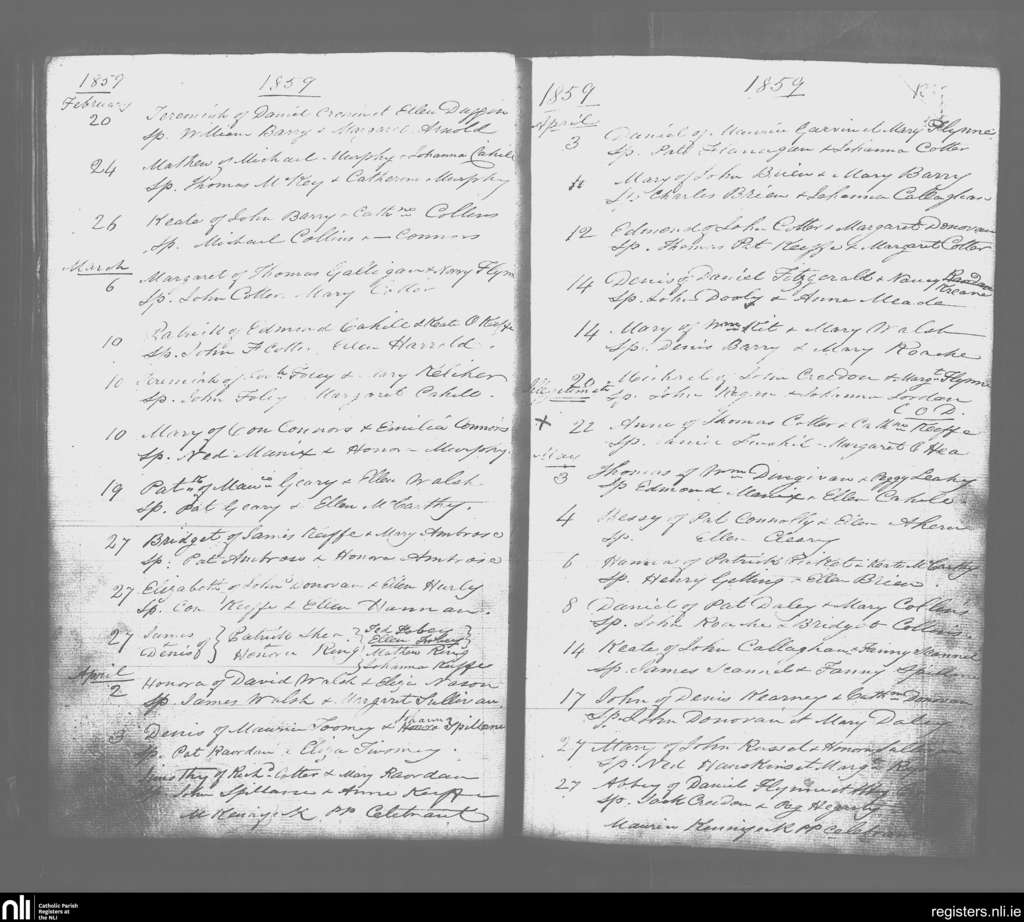 1859 1859
February
20 Jeremiah of Daniel Cronin et Ellen Duggan
Sp. William Barry & Margaret Arnold
24 Mathew of Michael Murphy & Johanna Cahill
Sp. Thomas McKey & Catherine Murphy
26 Keate of John Barry & Cathne Collins
Sp. Michael Collins & — Connors
March
6 Margaret of Thomas Galligan & Nory Flyn
Sp. John Cotter Mary Cotter
10 Patrick of Edmond Cahill & Keate O Keeffe
Sp. John Cotter Ellen Harrold
10 Jeremiah of Foley & Mary Kelcher
Sp. John Foley Margaret Cahill.
10 Mary of Con Connors & Emilia Connors
Sp. Ned Manix & Honor Murphy.
19 Patk of Mauce Geary & Ellen Walsh
Sp. Pat Geary & Ellen McCarthy.
27 Bridget of James Keeffe & Mary Ambrose
Sp. Pat Ambrose & Honora Ambrose
27 Elizabeth of John Donovan & Ellen Hurly
Sp. Con Keeffe & Ellen Hannan.
27 James Denis of } Patrick Shea Honora King } Ted Fobey
Ellen Foley
Mathew Ring
Johanna Keeffe
April
2 Honora of David Walsh & Eliza Nason
Sp. James Walsh & Margret Sullivan
3 Denis of Maurice Toomey & Johanna Spillane
Sp. Pat Reordan & Eliza Twomey.
Timothy of Richd Cotter & Mary Reordan
Sp. John Spillane & Anne Keeffe
PP Celebrant
1859 1859
April
3 Daniel of Maurice Garvin et Mary Flynne
Sp. Patt Flanagan & Johanna Cotter
Mary of John Brien & Mary Barry
Sp. Charles Brien & Johanna Callaghan
12 Edmond of John Cotter & Margaret Donovan
Sp. Thomas Pat Keeffe & Margaret Cotter
14 Denis of Daniel Fitzgerald & Nancy Reordan
Kreane
Sp. John Dooly & Anne Meade
14 Mary of Wm Kit & Mary Walsh
Sp. Denis Barry & Mary Roache
20 Michael of John Creedon & Margt Flynne
Illegitimate Sp. John Regan & Johanna Jordan
C O D.
X 22 Anne of Thomas Cotter & Cathne Keeffe
Sp. Margaret O Hea
May
3 Thomas of Wm Dunnivan & Peggy Leahy
Sp Edmond Manix & Ellen Cahill
4 Bessy of Pat Connolly & Ellen Ahern
Sp. Ellen Cleary
6 Hanna of Patrick & Keate McCarthy
Sp. Henry Gollins & Ellen Brien
8 Daniel of Pat Daley & Mary Collins
Sp. John Roache & Bridget Collins
14 Keate of John Callaghan & Fenny Scannel
Sp. James Scannel & Fanny Spillane
17 John of Denis Kearney & Cathne Donovan
Sp. John Donovan et Mary Daley
27 Mary of John Russel & Honora Sullivan
Sp. Ned Hawkins et Margt
27 Abbey of Daniel Flynn et
Sp. Jack Creedon & Peg Hegarty
Maurice PP celebrant
nli Catholic Parish
Registers at
the NLI
registers.nli.ie